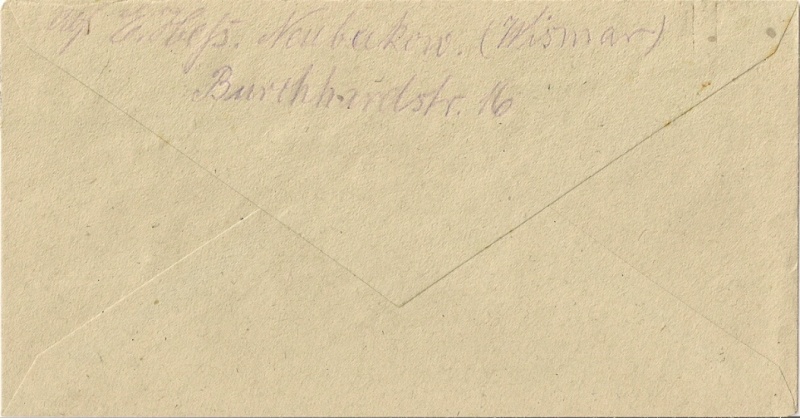 E. Heß. Neubukow. (Wismar)
Burchhardstr. 16